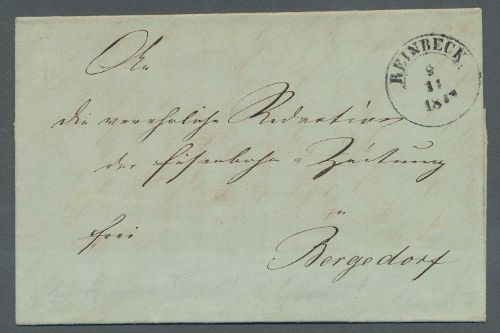 REINBECK
9
11
An
die verehrliche Redaction
der Eisenbahn-Zeitung
frei
in
Bergedorf